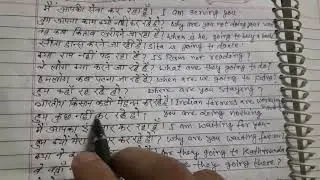 मैं आपकी सेवा कर रहा हूँ। I am serving you.
तुम अपना काम क्यों नहीं कर रहे हो? Why are you not doing your
वह कब किताब खरीदने जा रहा है? When is he going to buy a
सीता डान्स करने जा रही है। Sita is going to dance.
राम पढ़ रहा है? Is Ram reading?
वे लोग क्या करने जा रहे हैं? What are they going to do?
हमलोग कब पटना जा रहे हैं? When are we going to
तुम कहाँ रह रहे हो? Where are you staying?
भारतीय किसान कड़ी मेहनत कर रहे हैं। Indian farmers are working
तुम कुछ नहीं कर रहे हो। you are doing nothing
मैं आपका कर रहा हूँ। I am waiting for you.
तुम क्यों मेरा कर रहे हो? Why are you waiting for
क्या वे they going to
they going there?